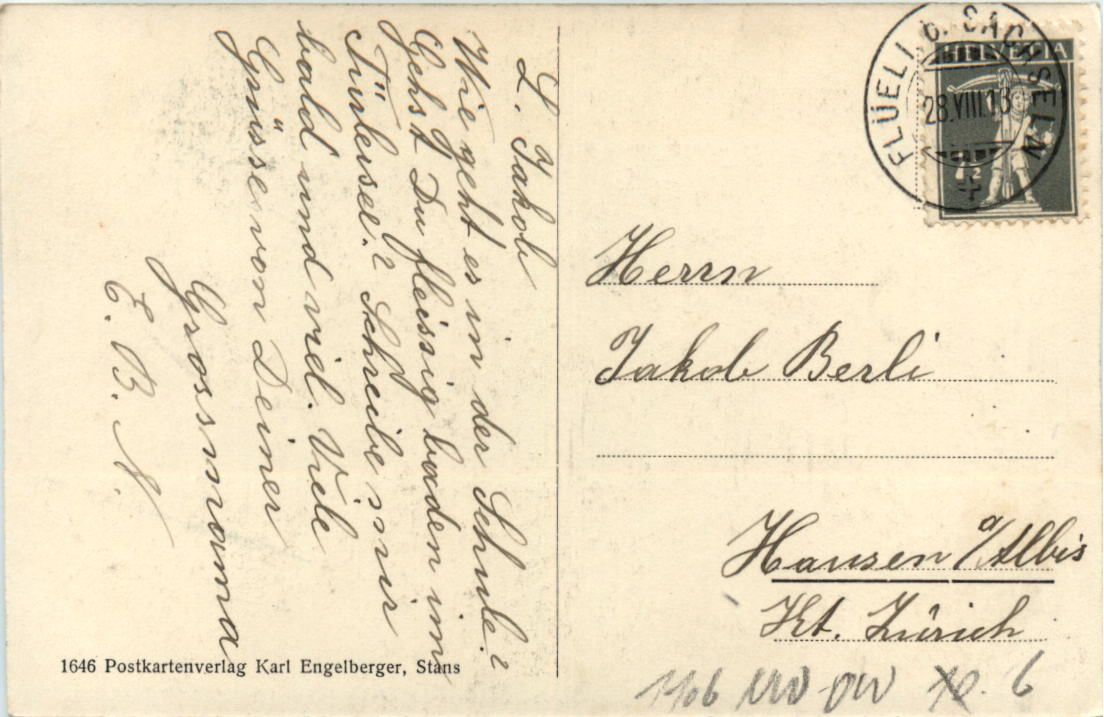 L. Jakob
Wie geht es in der Schule?
Gehst Du fleissig baden im
Türlersee? Schreibe mir
bald und viel. Viele
Grüsse von Deiner
Grossmama
E. B.
FLÜELI b. SACHSELN
28.VIII.13
HELVETIA
Herrn
Jakob Berli
Hausen a/Albis
Kt. Zürich
1646 Postkartenverlag Karl Engelberger, Stans
NW-OW 6